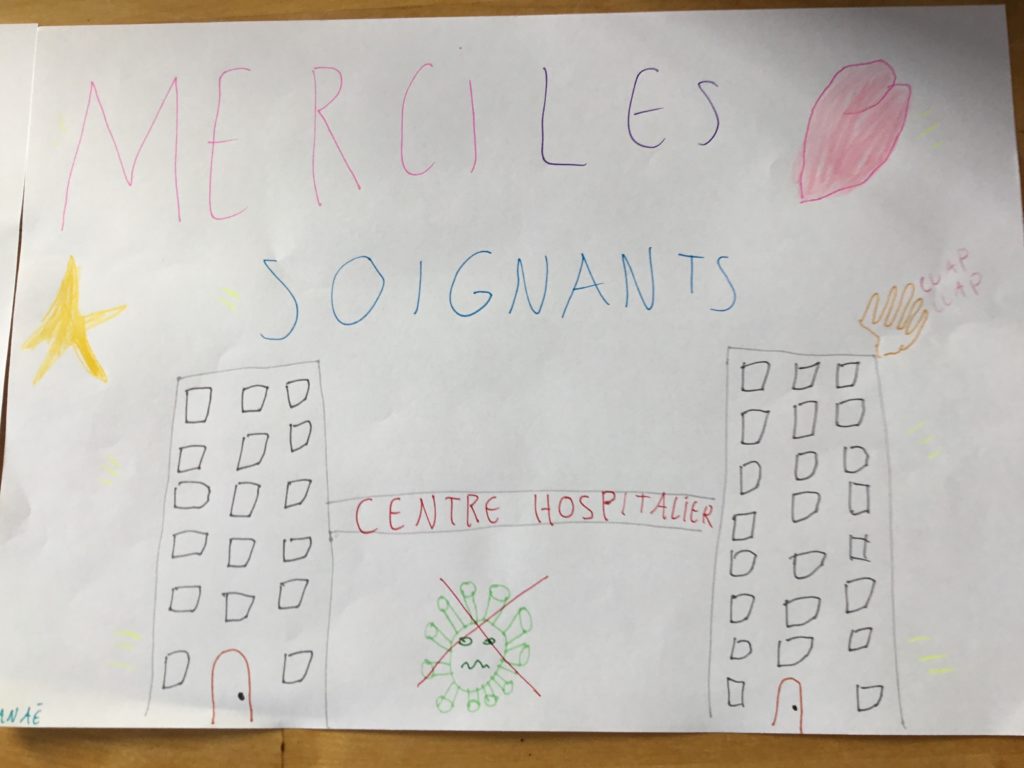 MERCI LES
SOIGNANTS
CLAP
CLAP
CENTRE HOSPITALIER